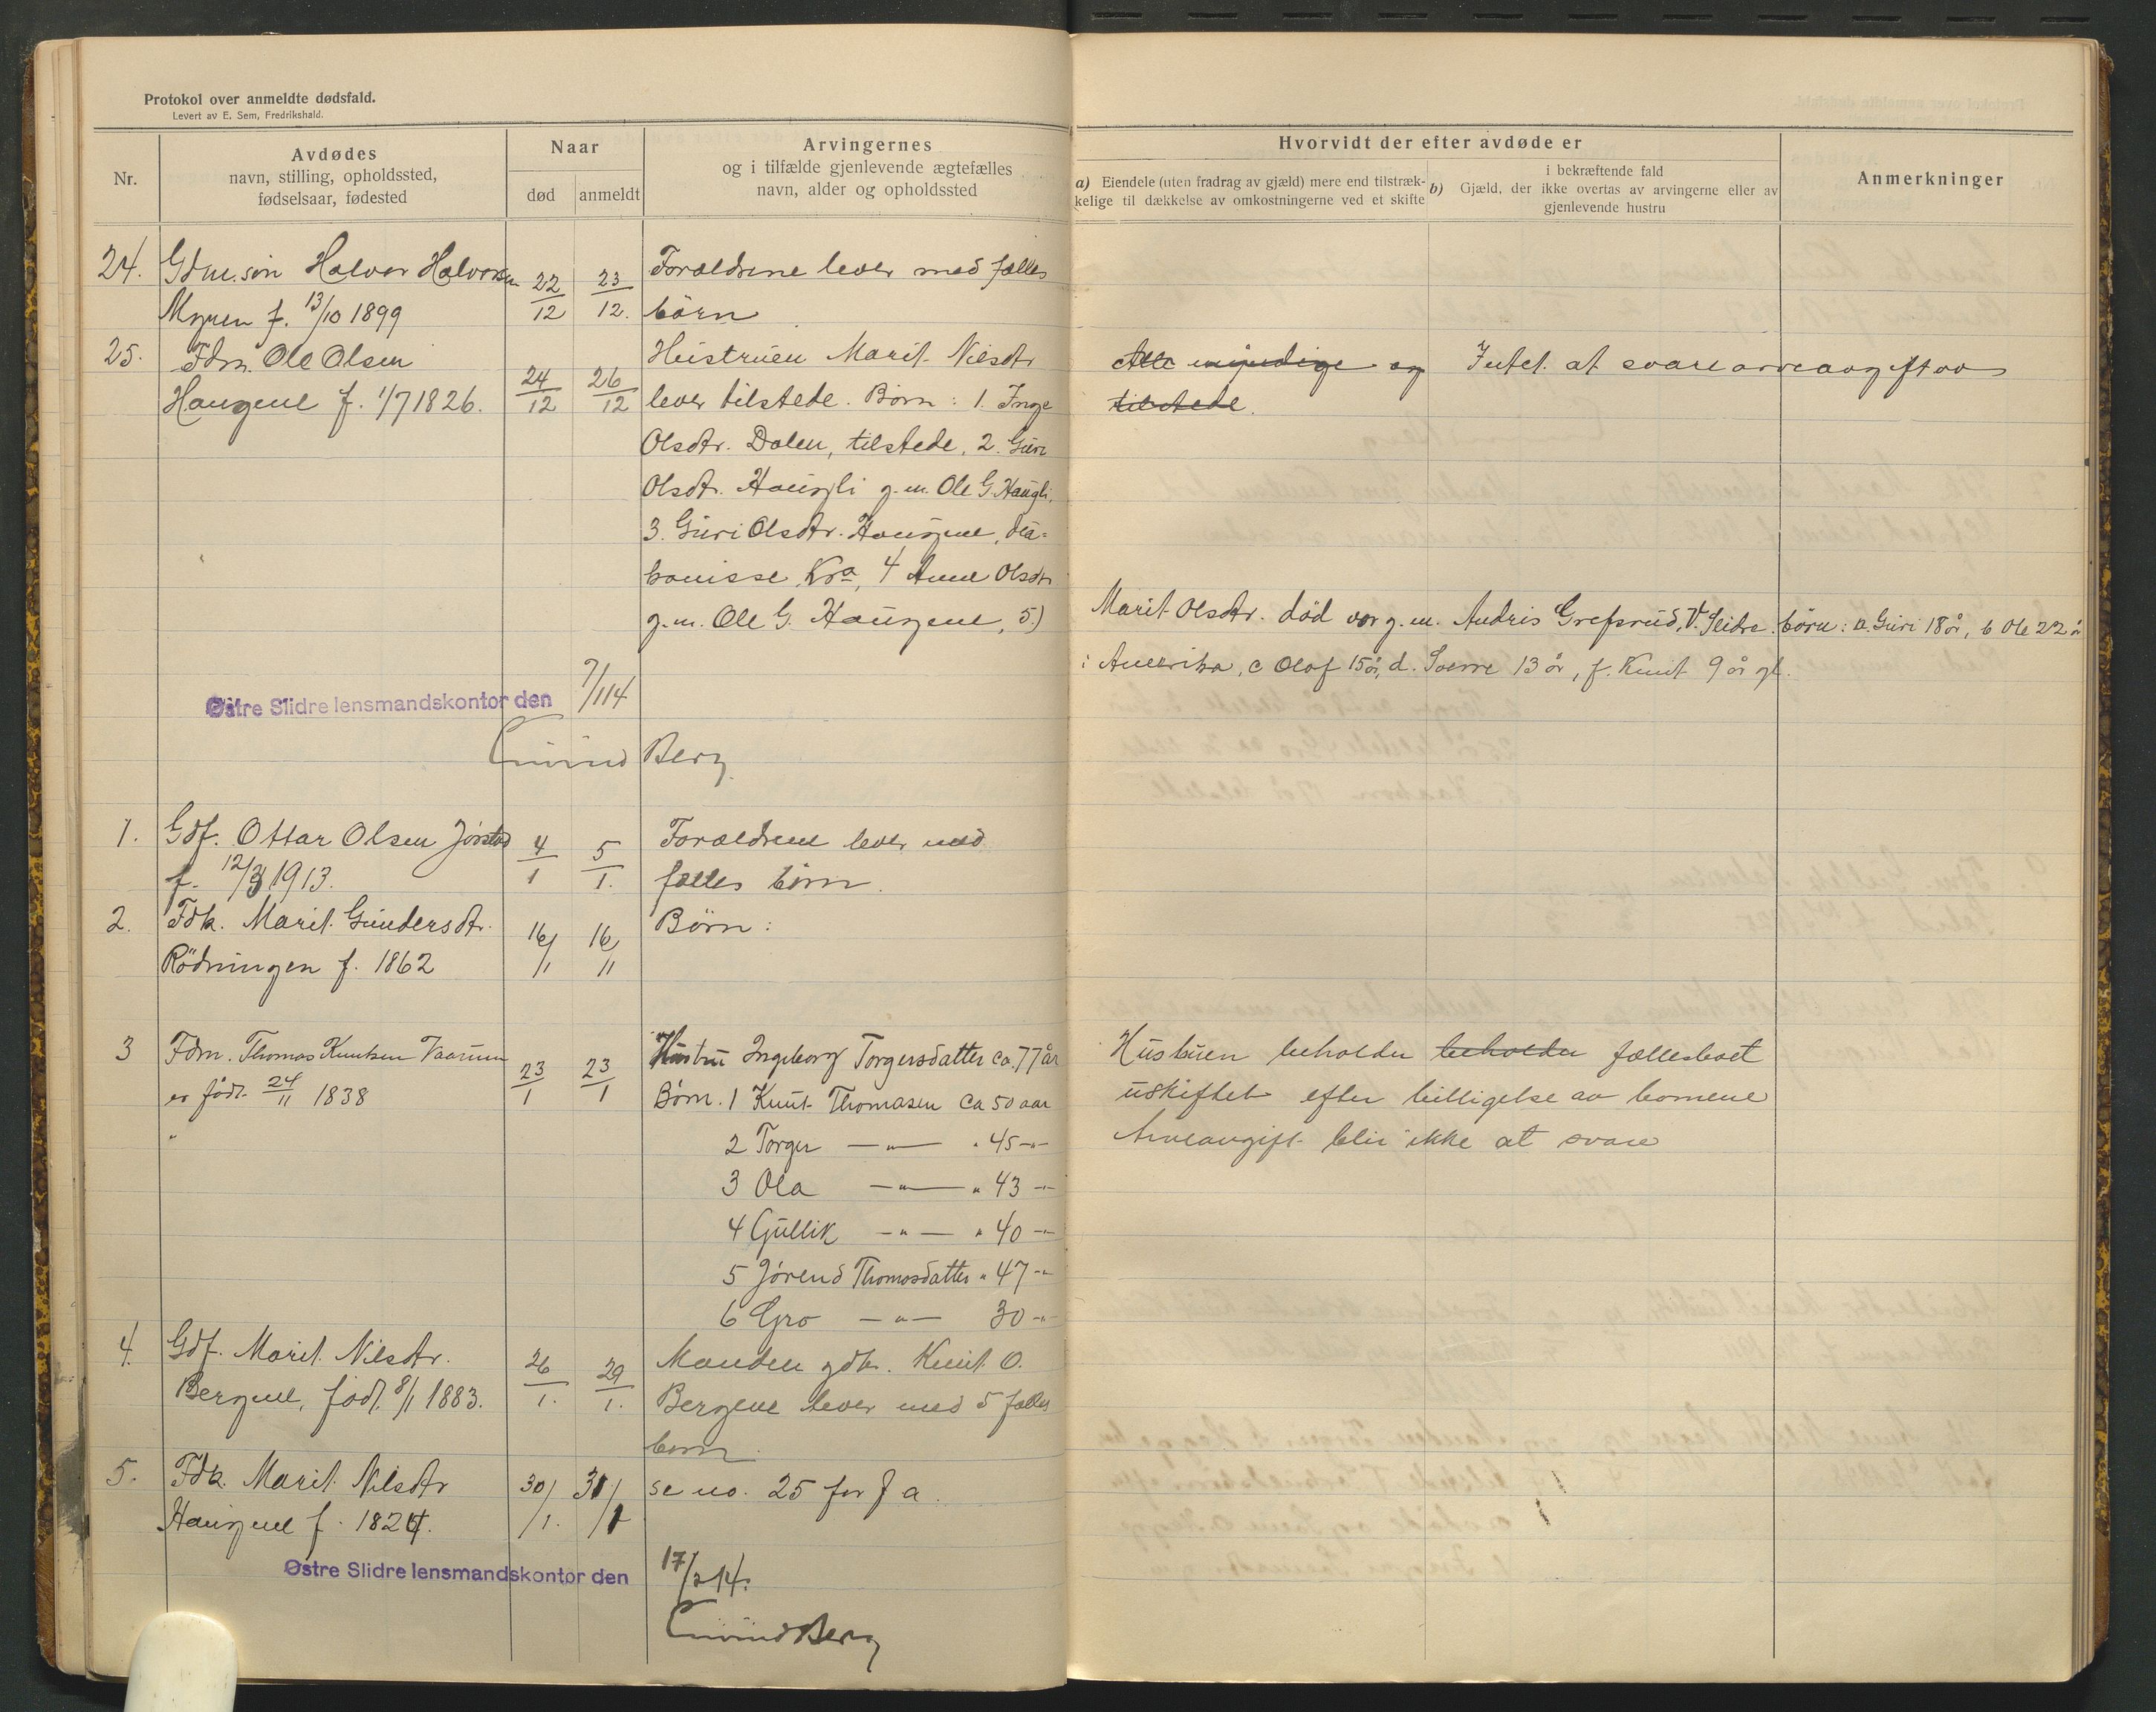 Protokol over anmeldte dødsfald.
Levert av E. Sem, Fredrikshald.
Nr.
Avdødes
navn, stilling, opholdssted,
fødselsaar, fødested
Naar
død
anmeldt
Arvingernes
og i tilfælde gjenlevende ægtefælles
navn, alder og opholdssted
Hvorvidt der efter avdøde er
a) Eiendele (uten fradrag av gjæld) mere end tilstræk-
kelige til dækkelse av omkostningerne ved et skifte
i bekræftende fald
b) Gjæld, der ikke overtas av arvingerne eller av
gjenlevende hustru
Anmerkninger
24. Gdm.søn Halvor Halvorsen 22/12 23/12. Forældrene lever med fælles
Myren f. 13/10 1899 børn
25. Fdm. Ole Olsen 24/12 26/12 Hustruen Marit Nilsdtr
Haugene f. 1/7 1826. lever tilstede. Børn: 1. Inge
Alle myndige og Intet at svare arveavgift av
tilstede.
Olsdtr. Dalen, tilstede, 2. Guri
Olsdtr. Haugli g.m. Ole G. Haugli,
3. Guri Olsdtr. Haugene, dia-
konisse, Kra, 4 Anne Olsdtr
g.m. Ole G. Haugene, 5)
Marit Olsdtr. død var g.m. Andris Grefsrud, V. Slidre. børn: a. Guri 18 år, b Ole 22 år
i Amerika, c Olaf 15 år, d. Sverre 13 år, f. Knut 9 år gl.
Østre Slidre lensmandskontor den 7/1 14
Eivind Berg
1. Gdf. Ottar Olsen Jørstad 4/1 5/1. Forældrene lever med
f. 12/3 1913. fælles børn.
2. Fdk. Marit Gundersdtr. 16/1 16/1 Børn:
Rödningen f. 1862
3 Fdm. Thomas Knutsen Vaarum 23/1 23/1 Hustru Ingeborg Torgersdatter ca. 77 år
er født 24/11 1838 Børn. 1 Knut Thomasen ca 50 aar
2 Torger — " — " 45 -"-
3 Ola — " — " 43 -"-
4 Gullik — " — " 40 -"-
5 Jørend Thomasdatter " 47 -"-
6 Gro — " — 30 -"-
Hustruen beholder beholder fællesboet
uskiftet efter billigelse av børnene
Arveavgift blir ikke at svare
4. Gdf. Marit Nilsdtr. 26/1. 29/1. Manden gdbr. Knut O.
Bergene, født 8/1 1883. Bergene lever med 5 fælles
børn.
5. Fdk. Marit Nilsdtr 30/1. 31/1 se no. 25 for f a.
Haugene f. 1824.
Østre Slidre lensmandskontor den 17/2 14.
Eivind Berg